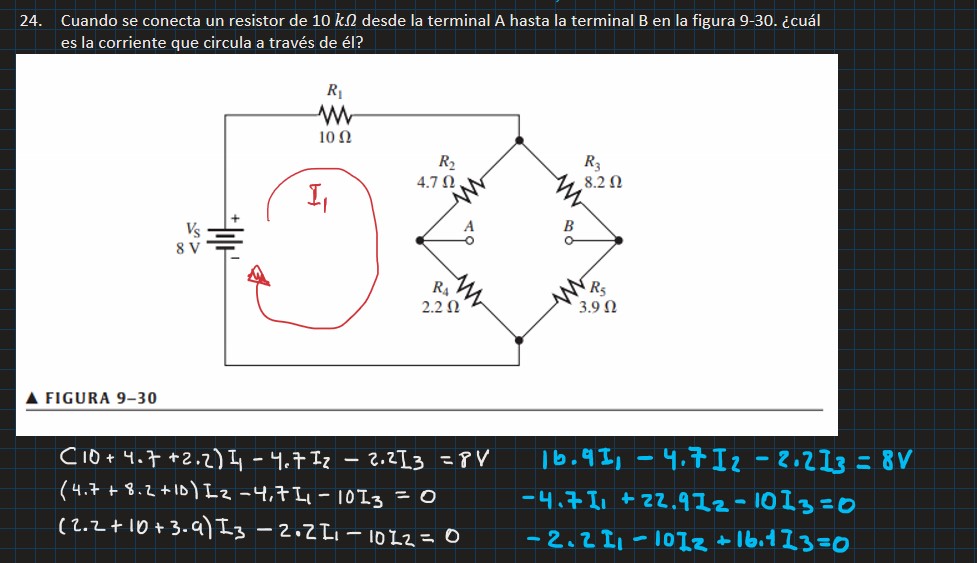 24. Cuando se conecta un resistor de 10 kΩ desde la terminal A hasta la terminal B en la figura 9-30. ¿cuál
es la corriente que circula a través de él?
R₁
10 Ω
R₂
4.7 Ω
R₃
8.2 Ω
I₁
A
B
+
Vs
8 V
–
R₄
2.2 Ω
R₅
3.9 Ω
▲ FIGURA 9–30
(10 + 4.7 + 2.2) I₁ - 4.7 I₂ - 2.2 I₃ = 8V
(4.7 + 8.2 + 10) I₂ - 4,7 I₁ - 10 I₃ = 0
(2.2 + 10 + 3.9) I₃ - 2.2 I₁ - 10 I₂ = 0
16.9 I₁ - 4.7 I₂ - 2.2 I₃ = 8V
-4.7 I₁ + 22.9 I₂ - 10 I₃ = 0
-2.2 I₁ - 10 I₂ + 16.1 I₃ = 0